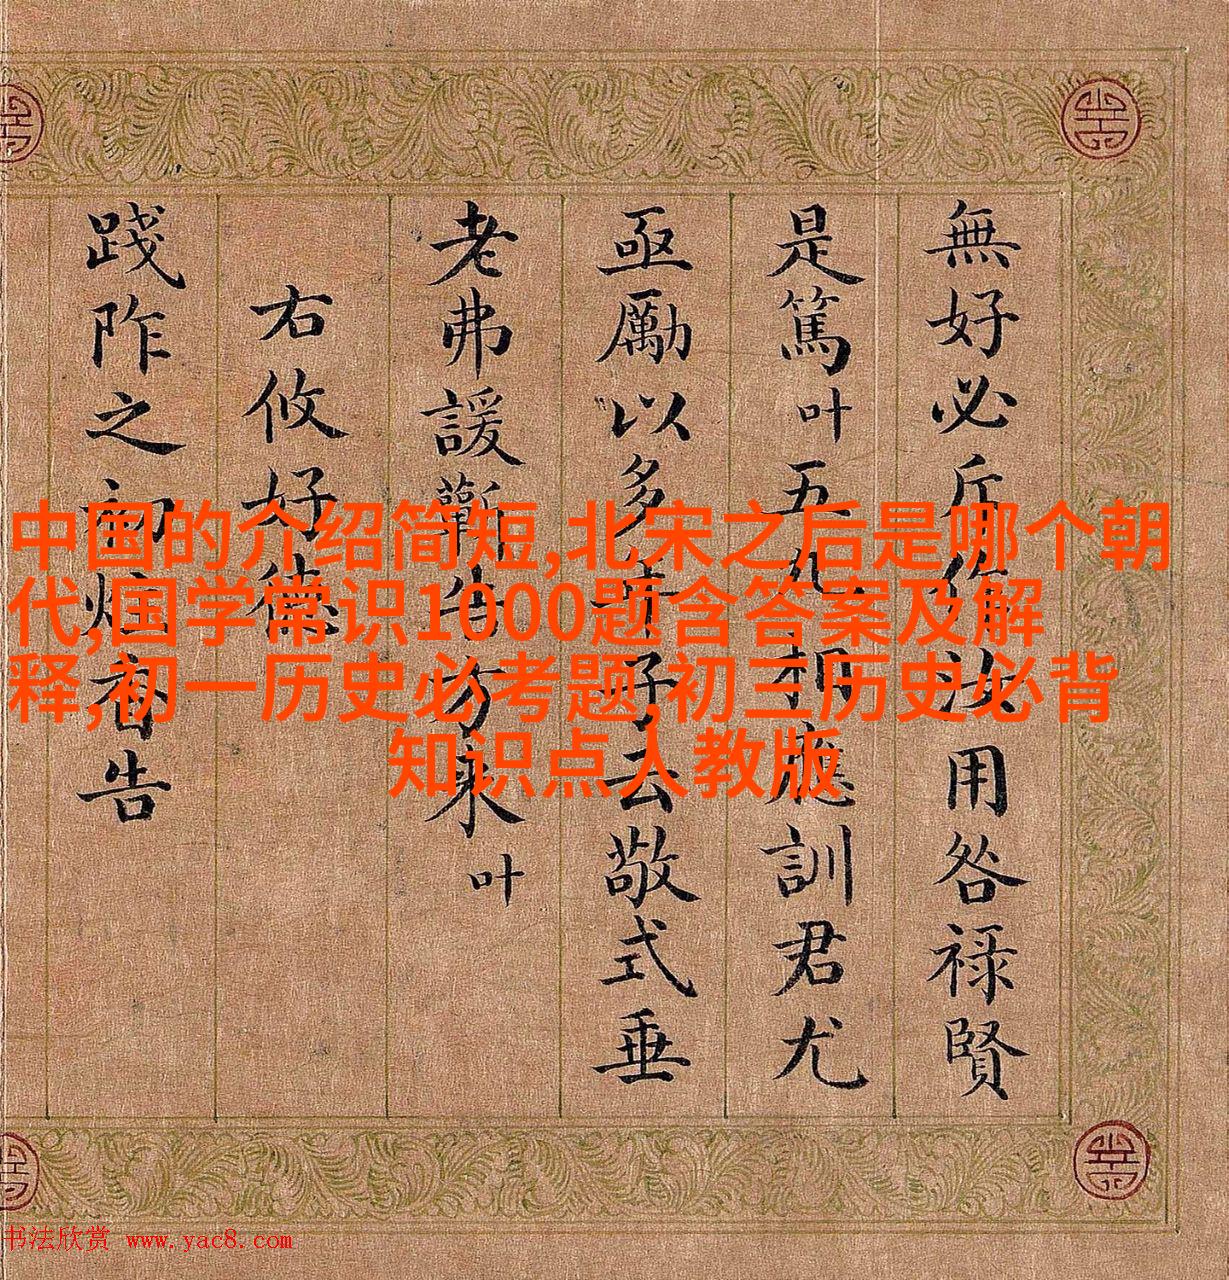 無好必斥作汝用咎祿賢
是篤叶五九相應訓君尤
亟勵以多好去敬式垂
老弗諼蘄方來叶
右攸好德
踐阼之初炷香告
中国的介绍简短,北宋之后是哪个朝
代,国学常识1000题含答案及解
释,初一历史必考题,初三历史必背
知识点人教版
书法欣赏 www.yac8.com